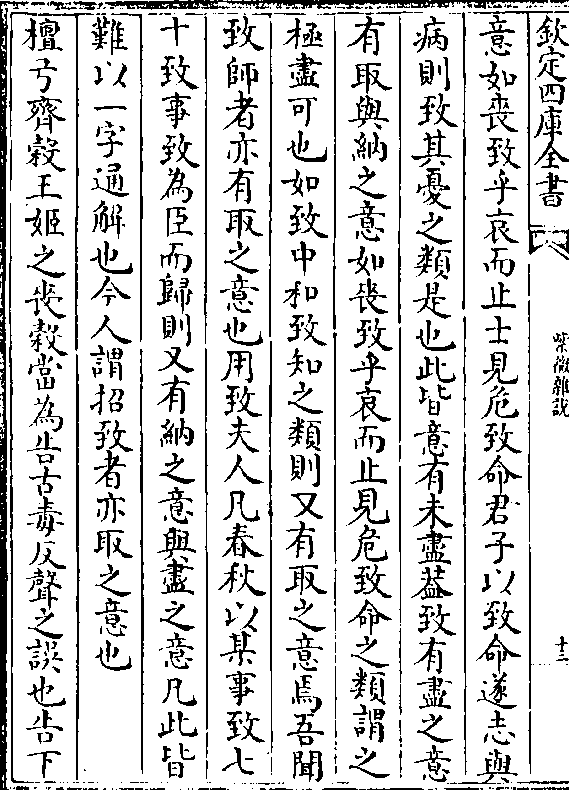 欽定四庫全書
紫微雜説
十三
意如喪致乎哀而止士見危致命君子以致命遂志與
病則致其憂之類是也此皆意有未盡葢致有盡之意
有取與納之意如喪致乎哀而止見危致命之類謂之
極盡可也如致中和致知之類則又有取之意焉吾聞
致師者亦有取之意也用致夫人凡春秋以某事致七
十致事致為臣而歸則又有納之意與盡之意凡此皆
難以一字通解也今人謂招致者亦取之意也
檀弓齊穀王姬之喪穀當為告古毒反聲之誤也告下